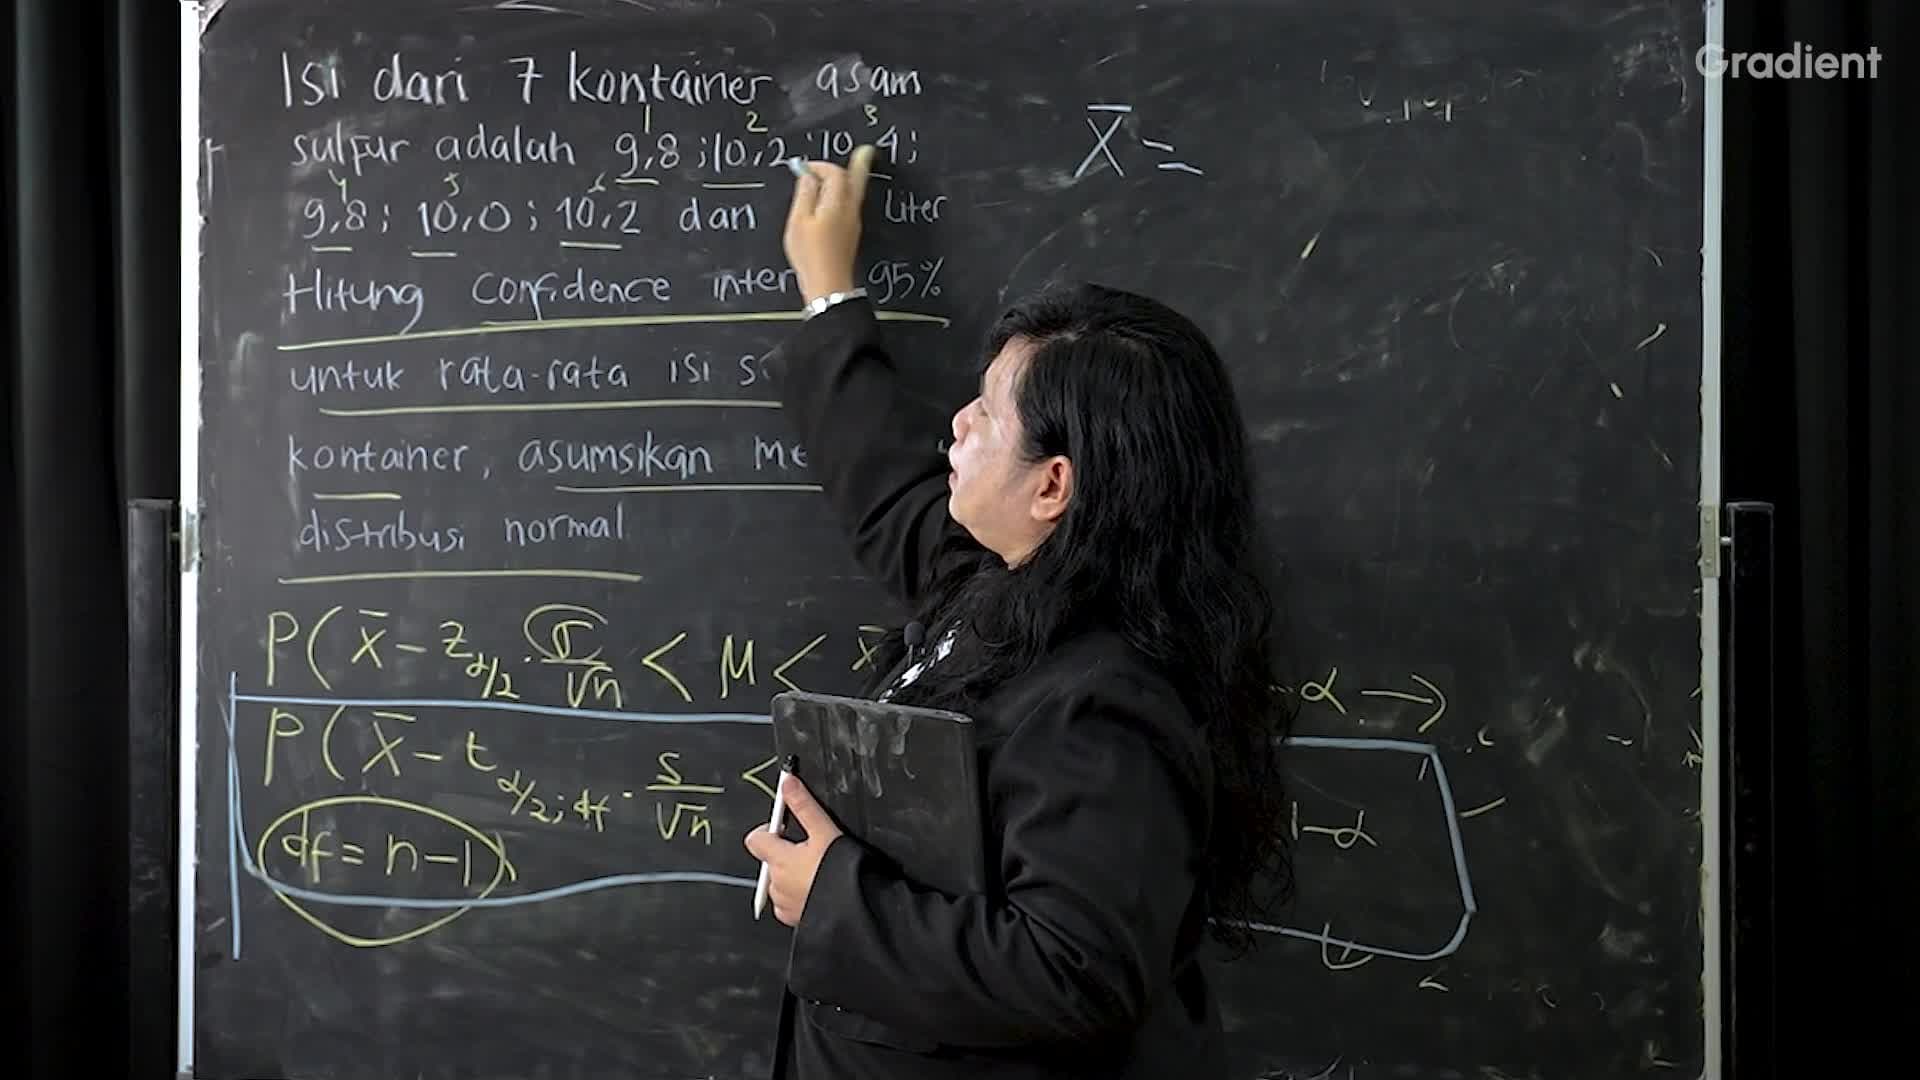 Gradient
Isi dari 7 kontainer asam
1 2 3
sulfur adalah 9,8 ; 10,2 ; 10 4 ;
4 5 6
9,8 ; 10,0 ; 10,2 dan Liter
Hitung confidence inter 95%
untuk rata-rata isi s
kontainer, asumsikan me
distribusi normal
X̄ =
P ( x̄ - z α/2 . σ/√n < μ < x̄ - α →
P ( x̄ - t α/2 ; df . s/√n < 1 - α
df = n - 1